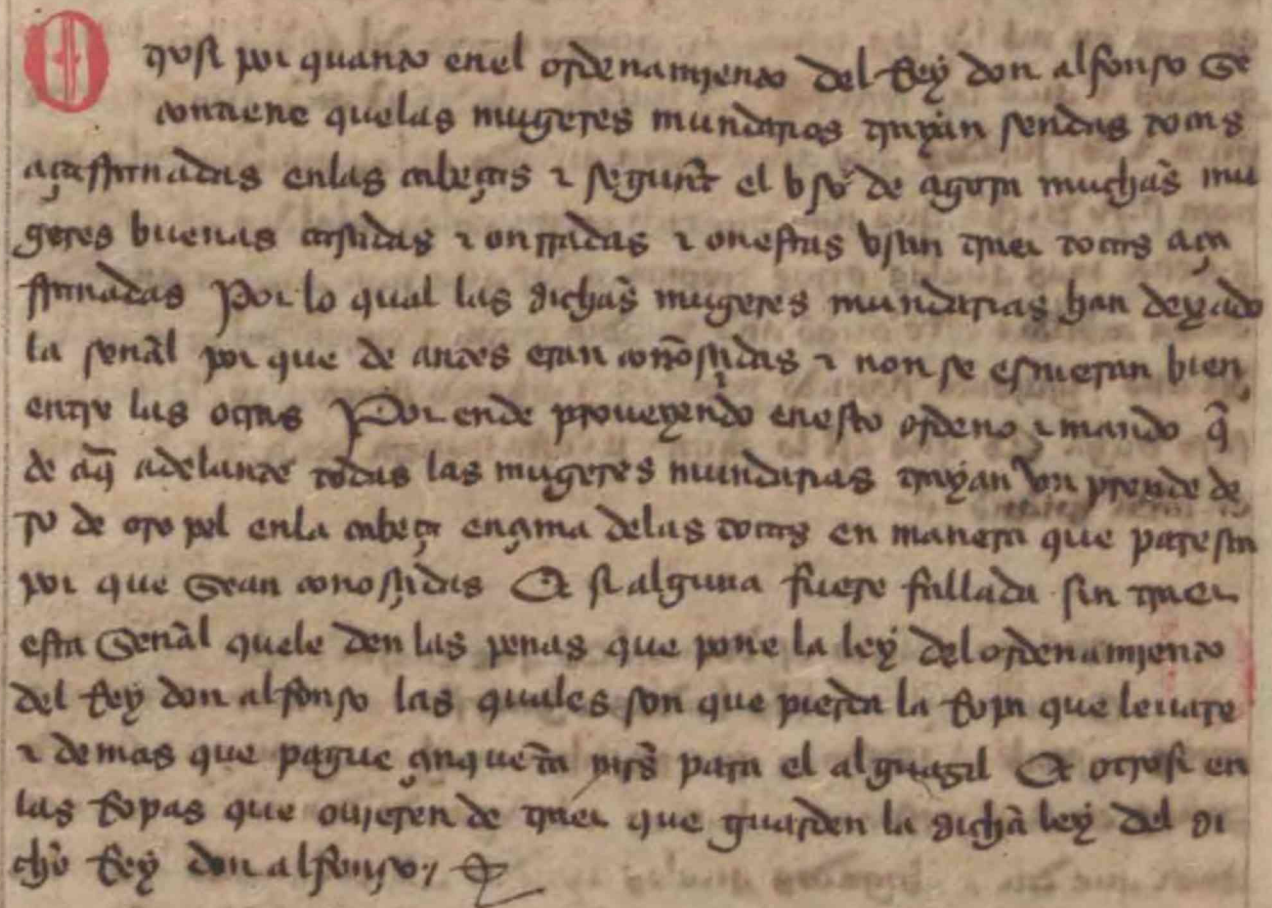 Otrosi por quanto enel ordenamjento del Rey don alfonso se
contiene quelas mugeres mundarias trayan sendas tocas
açafranadas enlas cabeças τ segunt el vso de agora muchas mu
geres buenas casadas τ onrradas τ onestas vsan traer tocas aça
franadas Por lo qual las dichas mugeres mundarias han dexado
la señal por que de antes eran conosçidas τ non se esmeran bien
entre las otras Por ende proueyendo enesto ordeno τ mando q̃
de aq̃ adelante todas las mugeres mundarias trayan vn prende de
ro de oro pel enla cabeça ençima delas tocas en manera que paresca
por que sean conosçidas Et si alguna fuere fallada sin traer
esta señal quele den las penas que pone la ley del ordenamjento
del Rey don alfonso las quales son que pierda la Ropa que leuare
τ demas que pague çinquẽta mr̃s para el alguazil Et otrosi en
las Ropas que oujeren de traer que guarden la dicha ley del di
cho Rey don alfonso